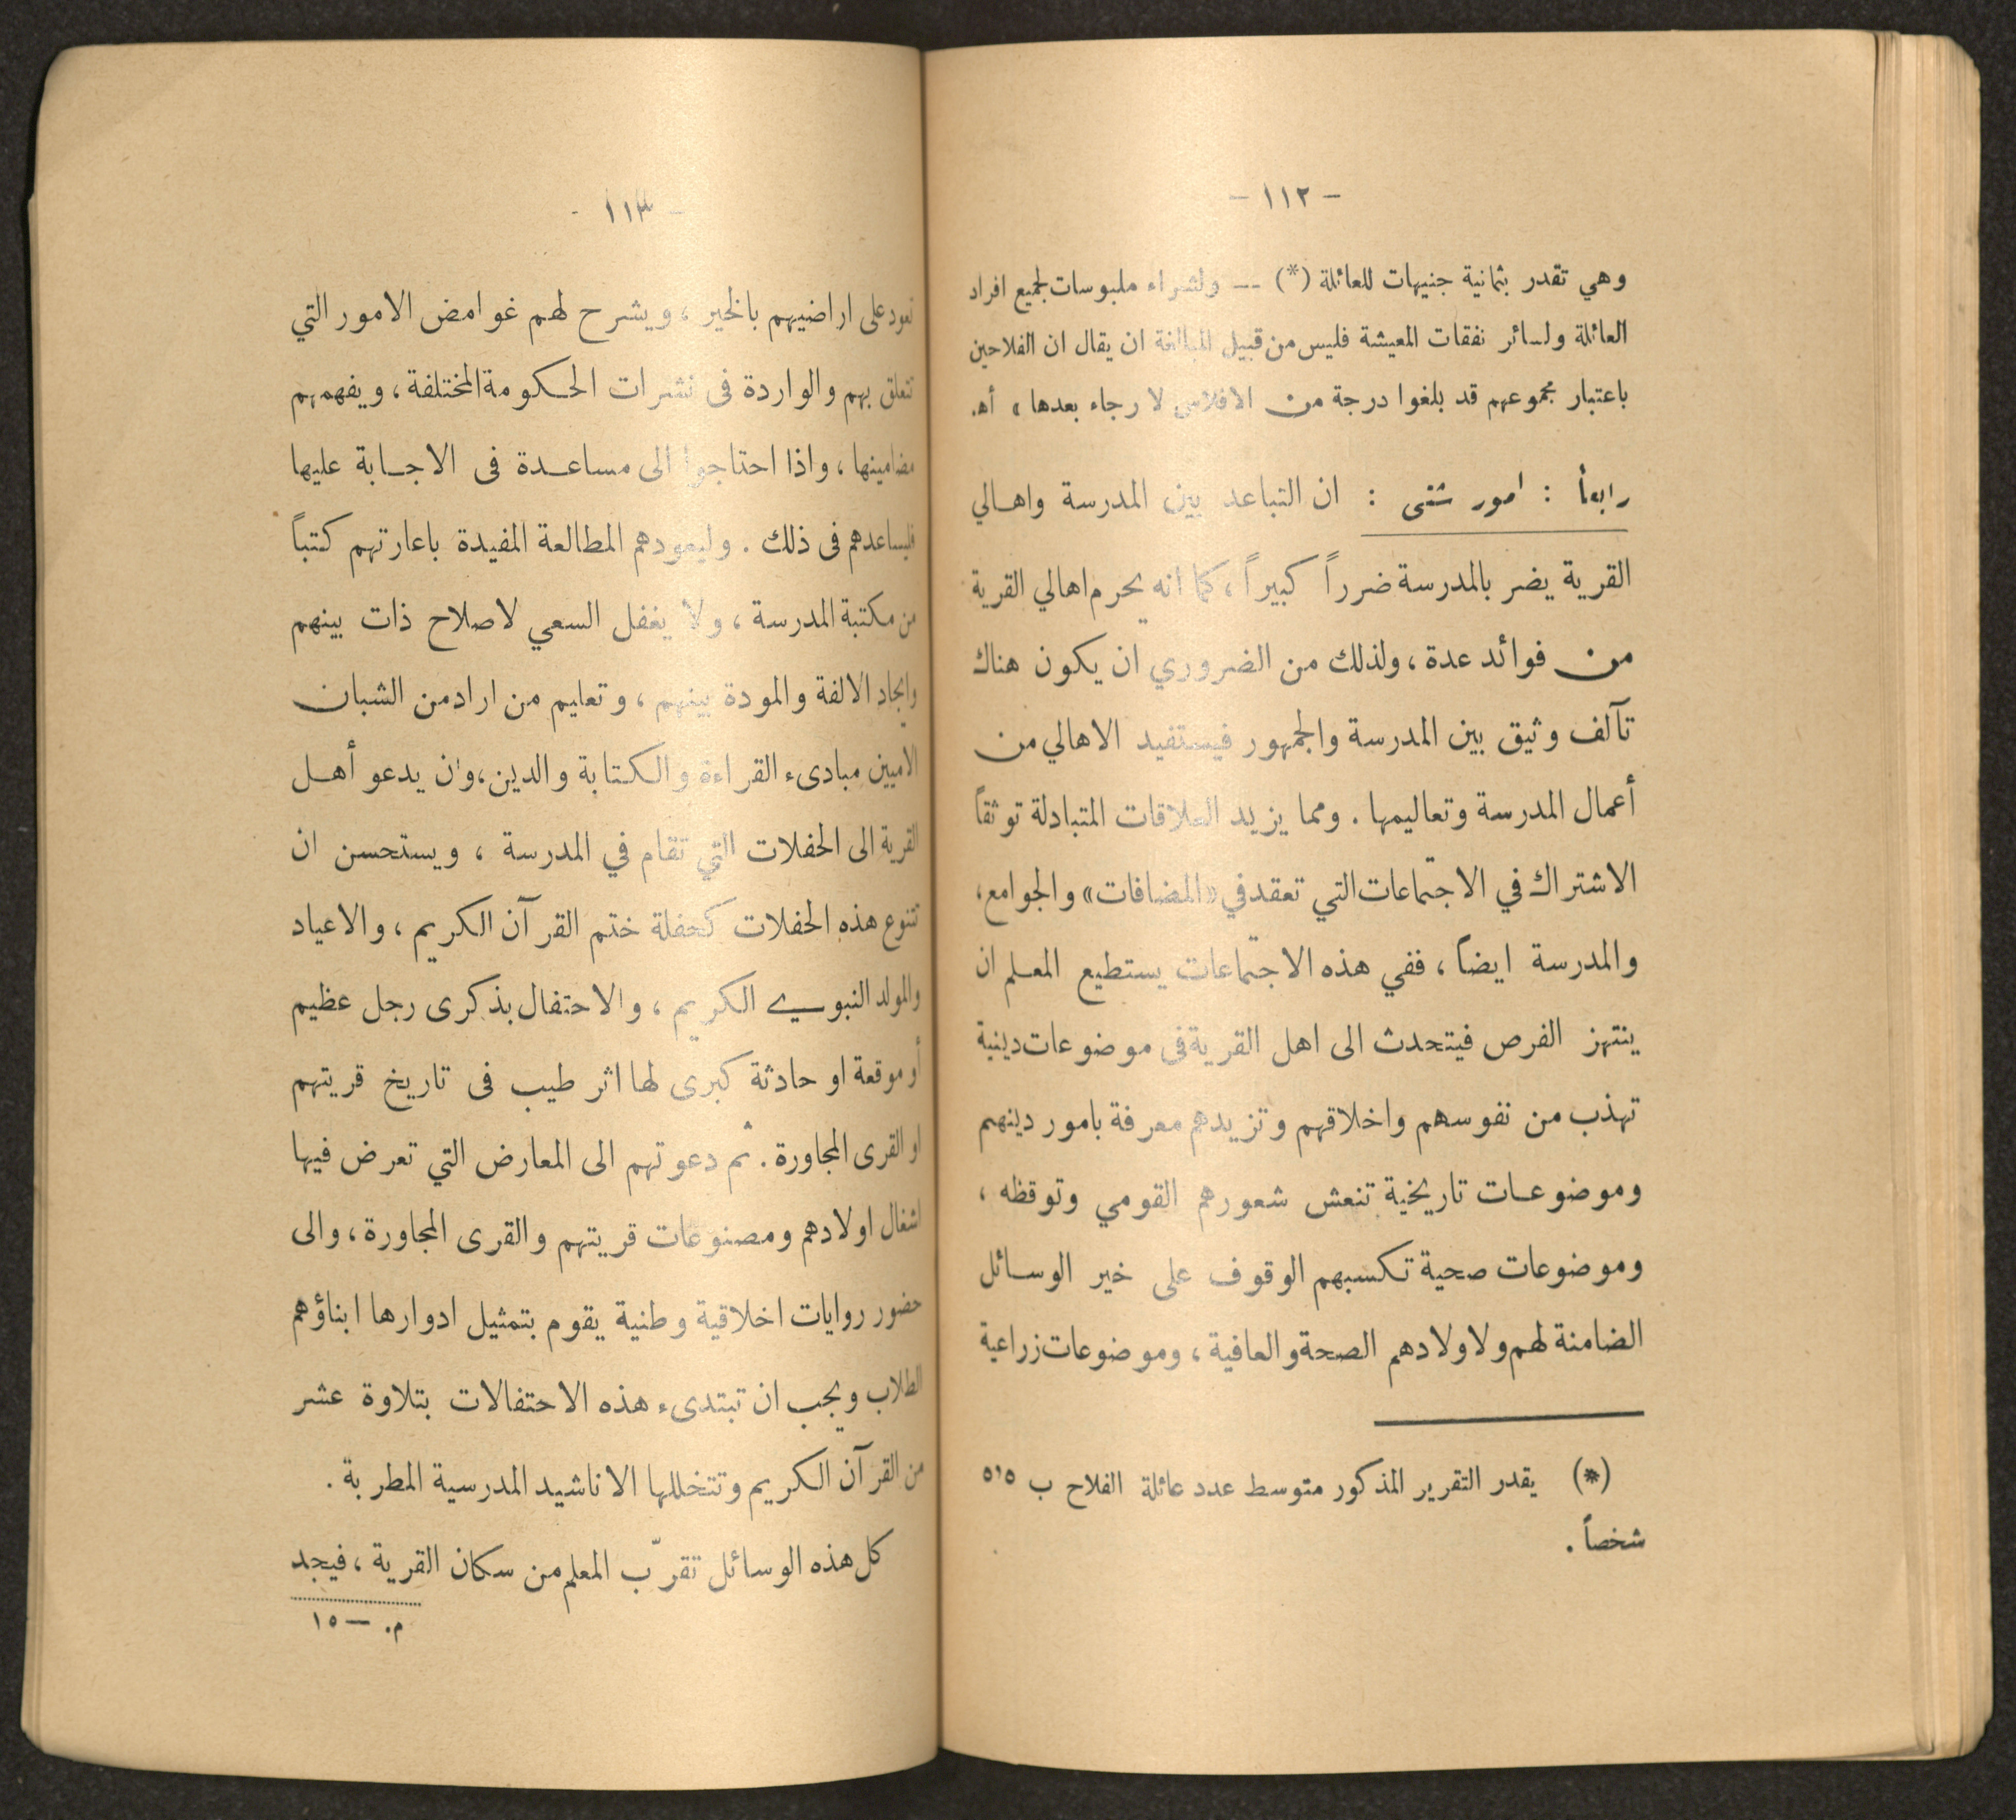 - ١١٢ -
وهي تقدر بثمانية جنيهات للعائلة (*) -- ولشراء ملبوسات لجميع افراد
العائلة ولسائر نفقات المعيشة فليس من قبيل المبالغة ان يقال ان الفلاحين
باعتبار مجموعهم قد بلغوا درجة من الافلاس لا رجاء بعدها » أهـ.
رابعاً : امور شتى : ان التباعد بين المدرسة واهالي
القرية يضر بالمدرسة ضرراً كبيراً ، كما انه يحرم اهالي القرية
من فوائد عدة ، ولذلك من الضروري ان يكون هناك
تآلف وثيق بين المدرسة والجمهور فيستفيد الاهالي من
أعمال المدرسة وتعاليمها . ومما يزيد العلاقات المتبادلة توثقاً
الاشتراك في الاجتماعات التي تعقد في «المضافات» والجوامع ،
والمدرسة ايضاً ، ففي هذه الاجتماعات يستطيع المعلم ان
ينتهز الفرص فيتحدث الى اهل القرية في موضوعات دينية
تهذب من نفوسهم واخلاقهم وتزيدهم معرفة بامور دينهم
وموضوعات تاريخية تنعش شعورهم القومي وتوقظه ،
وموضوعات صحية تكسبهم الوقوف على خير الوسائل
الضامنة لهم ولاولادهم الصحة والعافية ، وموضوعات زراعية
(*) يقدر التقرير المذكور متوسط عدد عائلة الفلاح ب ٥٫٥
شخصاً .
- ١١٣ -
تعود على اراضيهم بالخير ، ويشرح لهم غوامض الامور التي
تتعلق بهم والواردة في نشرات الحكومة المختلفة ، ويفهمهم
مضامينها ، واذا احتاجوا الى مساعدة في الاجابة عليها
فليساعدهم في ذلك . وليعودهم المطالعة المفيدة باعارتهم كتباً
من مكتبة المدرسة ، ولا يغفل السعي لاصلاح ذات بينهم
وايجاد الالفة والمودة بينهم ، وتعليم من اراد من الشبان
الاميين مبادىء القراءة والكتابة والدين ، وان يدعو أهل
القرية الى الحفلات التي تقام في المدرسة ، ويستحسن ان
تتنوع هذه الحفلات كحفلة ختم القرآن الكريم ، والاعياد
والمولد النبوي الكريم ، والاحتفال بذكرى رجل عظيم
أو موقعة او حادثة كبرى لها اثر طيب في تاريخ قريتهم
او القرى المجاورة . ثم دعوتهم الى المعارض التي تعرض فيها
اشغال اولادهم ومصنوعات قريتهم والقرى المجاورة ، والى
حضور روايات اخلاقية وطنية يقوم بتمثيل ادوارها ابناؤهم
الطلاب ويجب ان تبتدىء هذه الاحتفالات بتلاوة عشر
من القرآن الكريم وتتخللها الاناشيد المدرسية المطربة .
كل هذه الوسائل تقرّب المعلم من سكان القرية ، فيجد
م. — ١٥